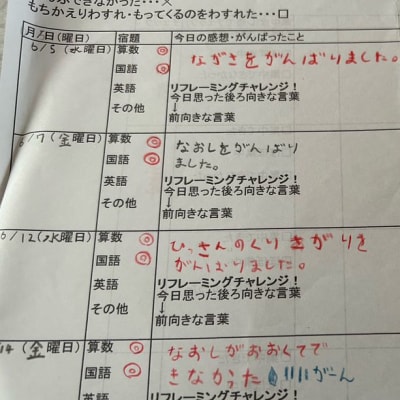 できなかった・・・×
もちかえりわすれ・もってくるのをわすれた・・・□
月/日(曜日) 宿題 今日の感想・がんばったこと
6/5(水曜日) 算数 ◎ ながさをがんばりました。
国語 ◎
英語 リフレーミングチャレンジ!
今日思った後ろ向きな言葉
その他 ↓
前向きな言葉
6/7(金曜日) 算数 ◎ なおしをがんばり
国語 ◎ ました。
英語 リフレーミングチャレンジ!
今日思った後ろ向きな言葉
その他 ↓
前向きな言葉
6/12(水曜日) 算数 ◎ ひっさんのくりさがりを
国語 ◎ がんばりました。
英語 リフレーミングチャレンジ!
今日思った後ろ向きな言葉
その他 ↓
前向きな言葉
14(金曜日) 算数 ◎ なおしがおおくてで
国語 ◎ きなかった がーん
英語 リフレーミングチャレンジ!